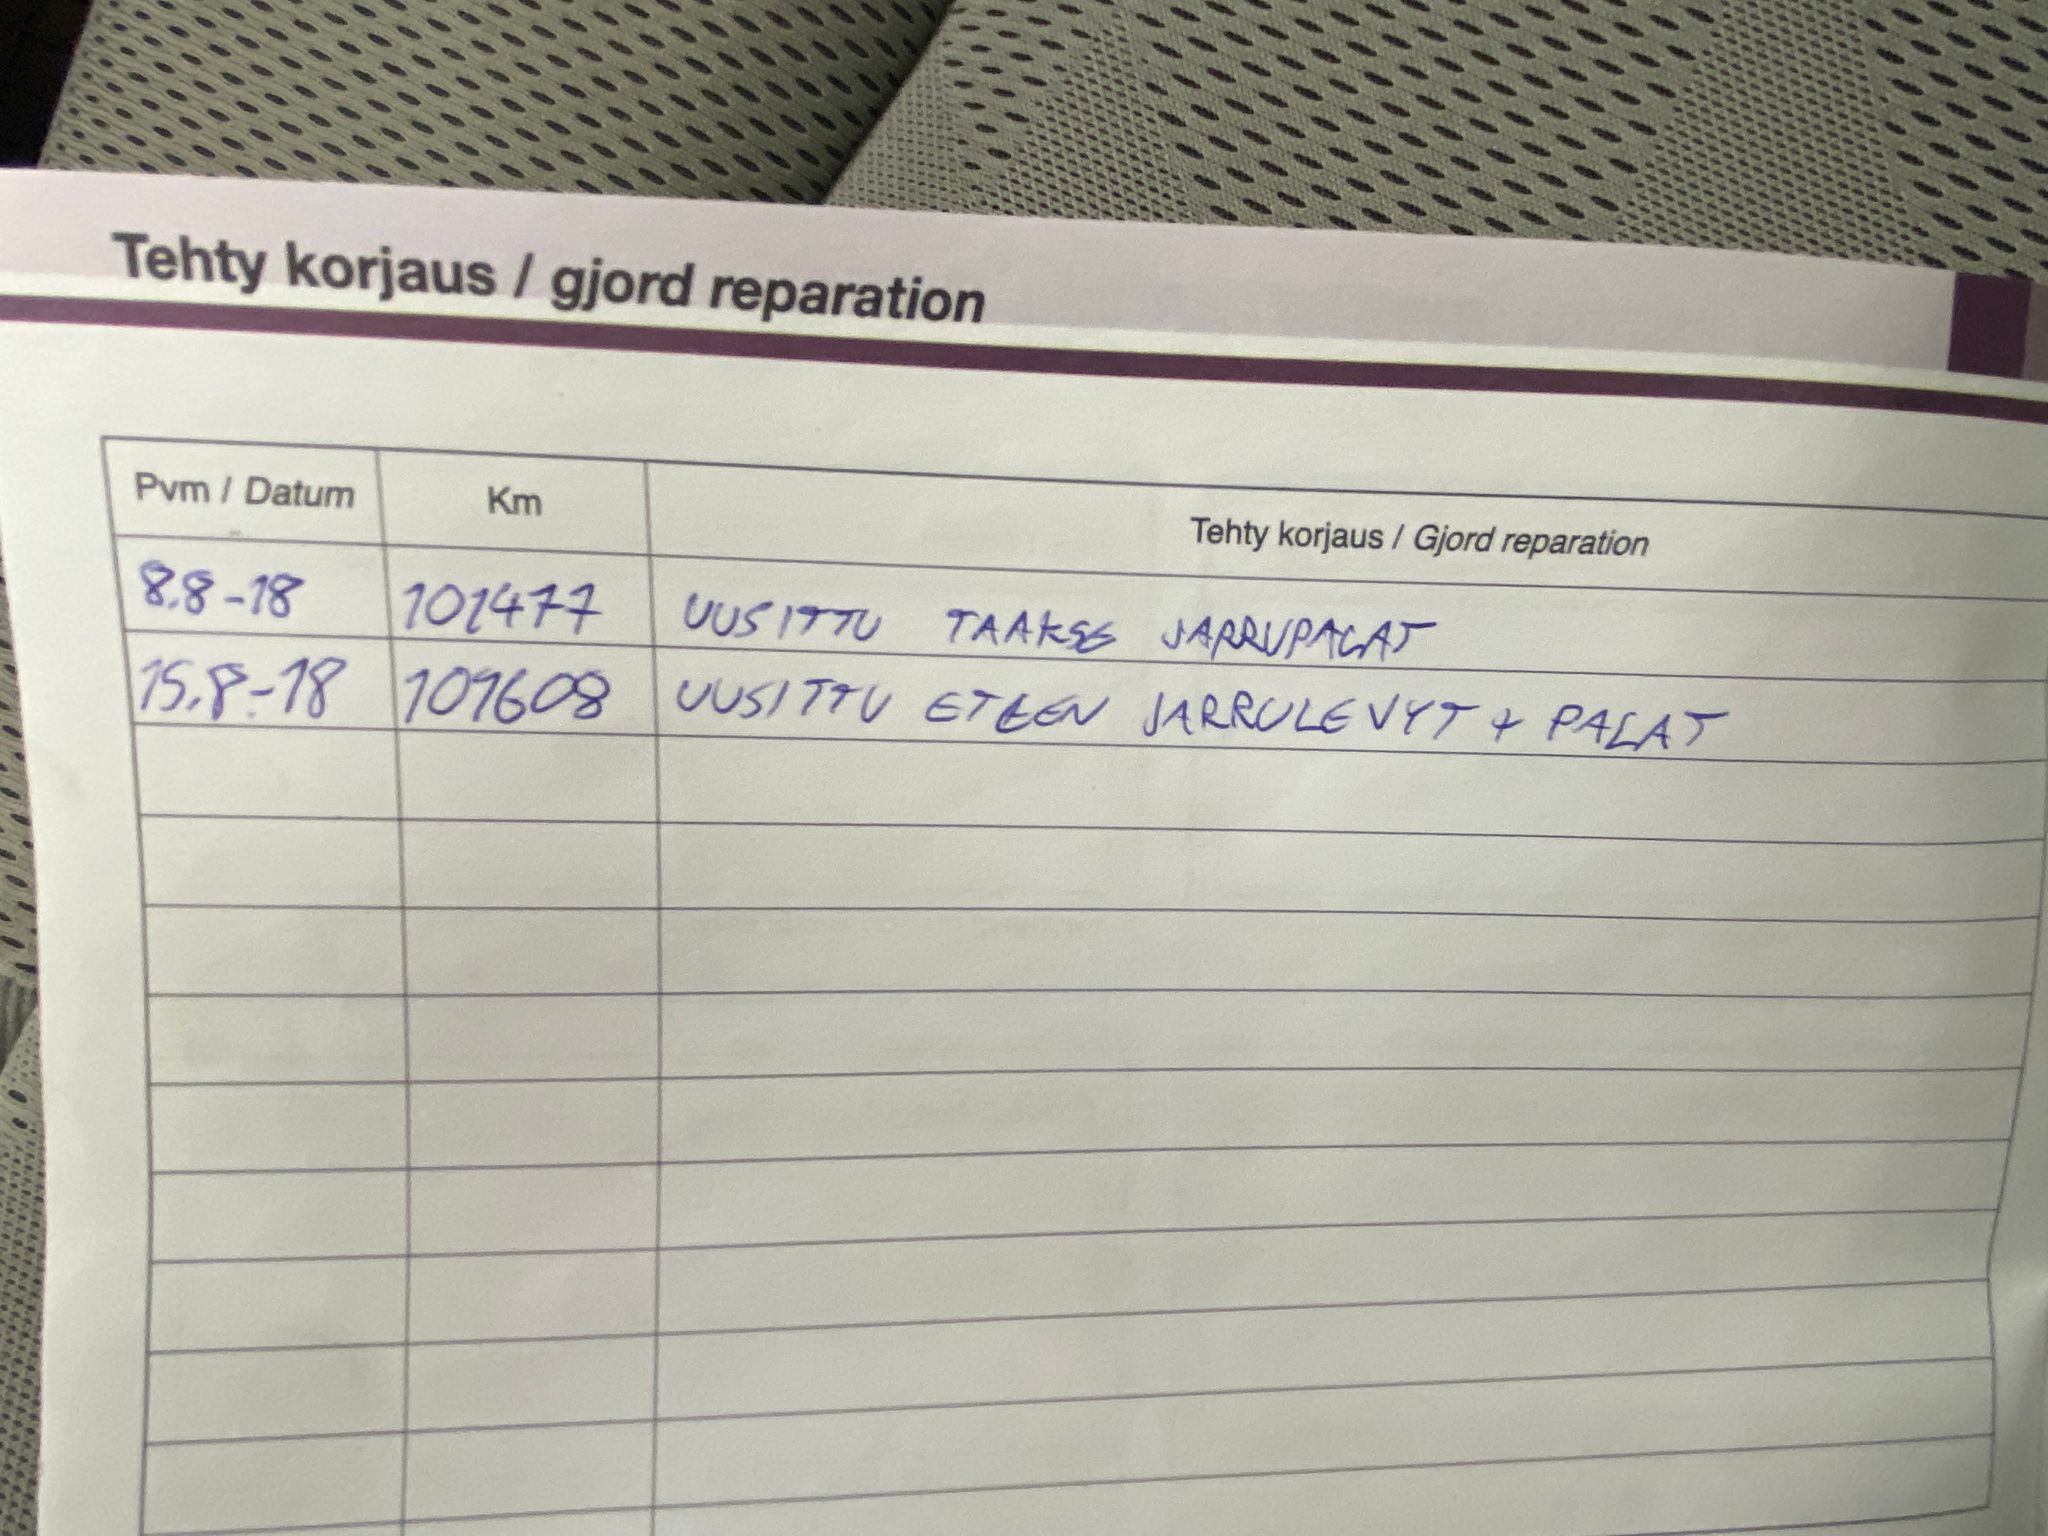 Tehty korjaus / gjord reparation
Pvm / Datum Km Tehty korjaus / Gjord reparation
8.8-18 101477 UUSITTU TAAKSE JARRUPALAT
15.8-18 101608 UUSITTU ETEEN JARRULEVYT + PALAT